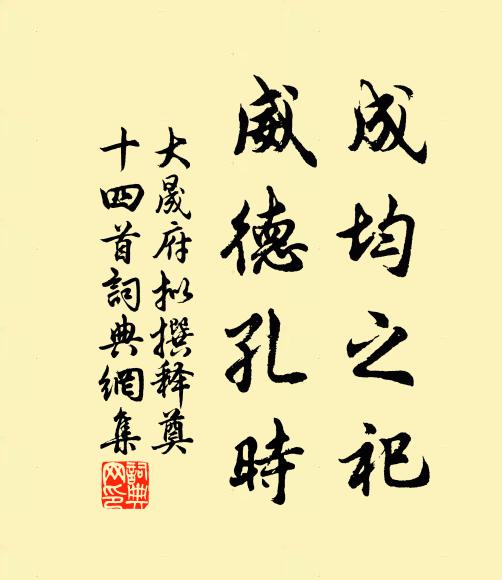 成均之祀
威德孔時
大晟府拟撰释奠
十四首詞典網集
詞典網印